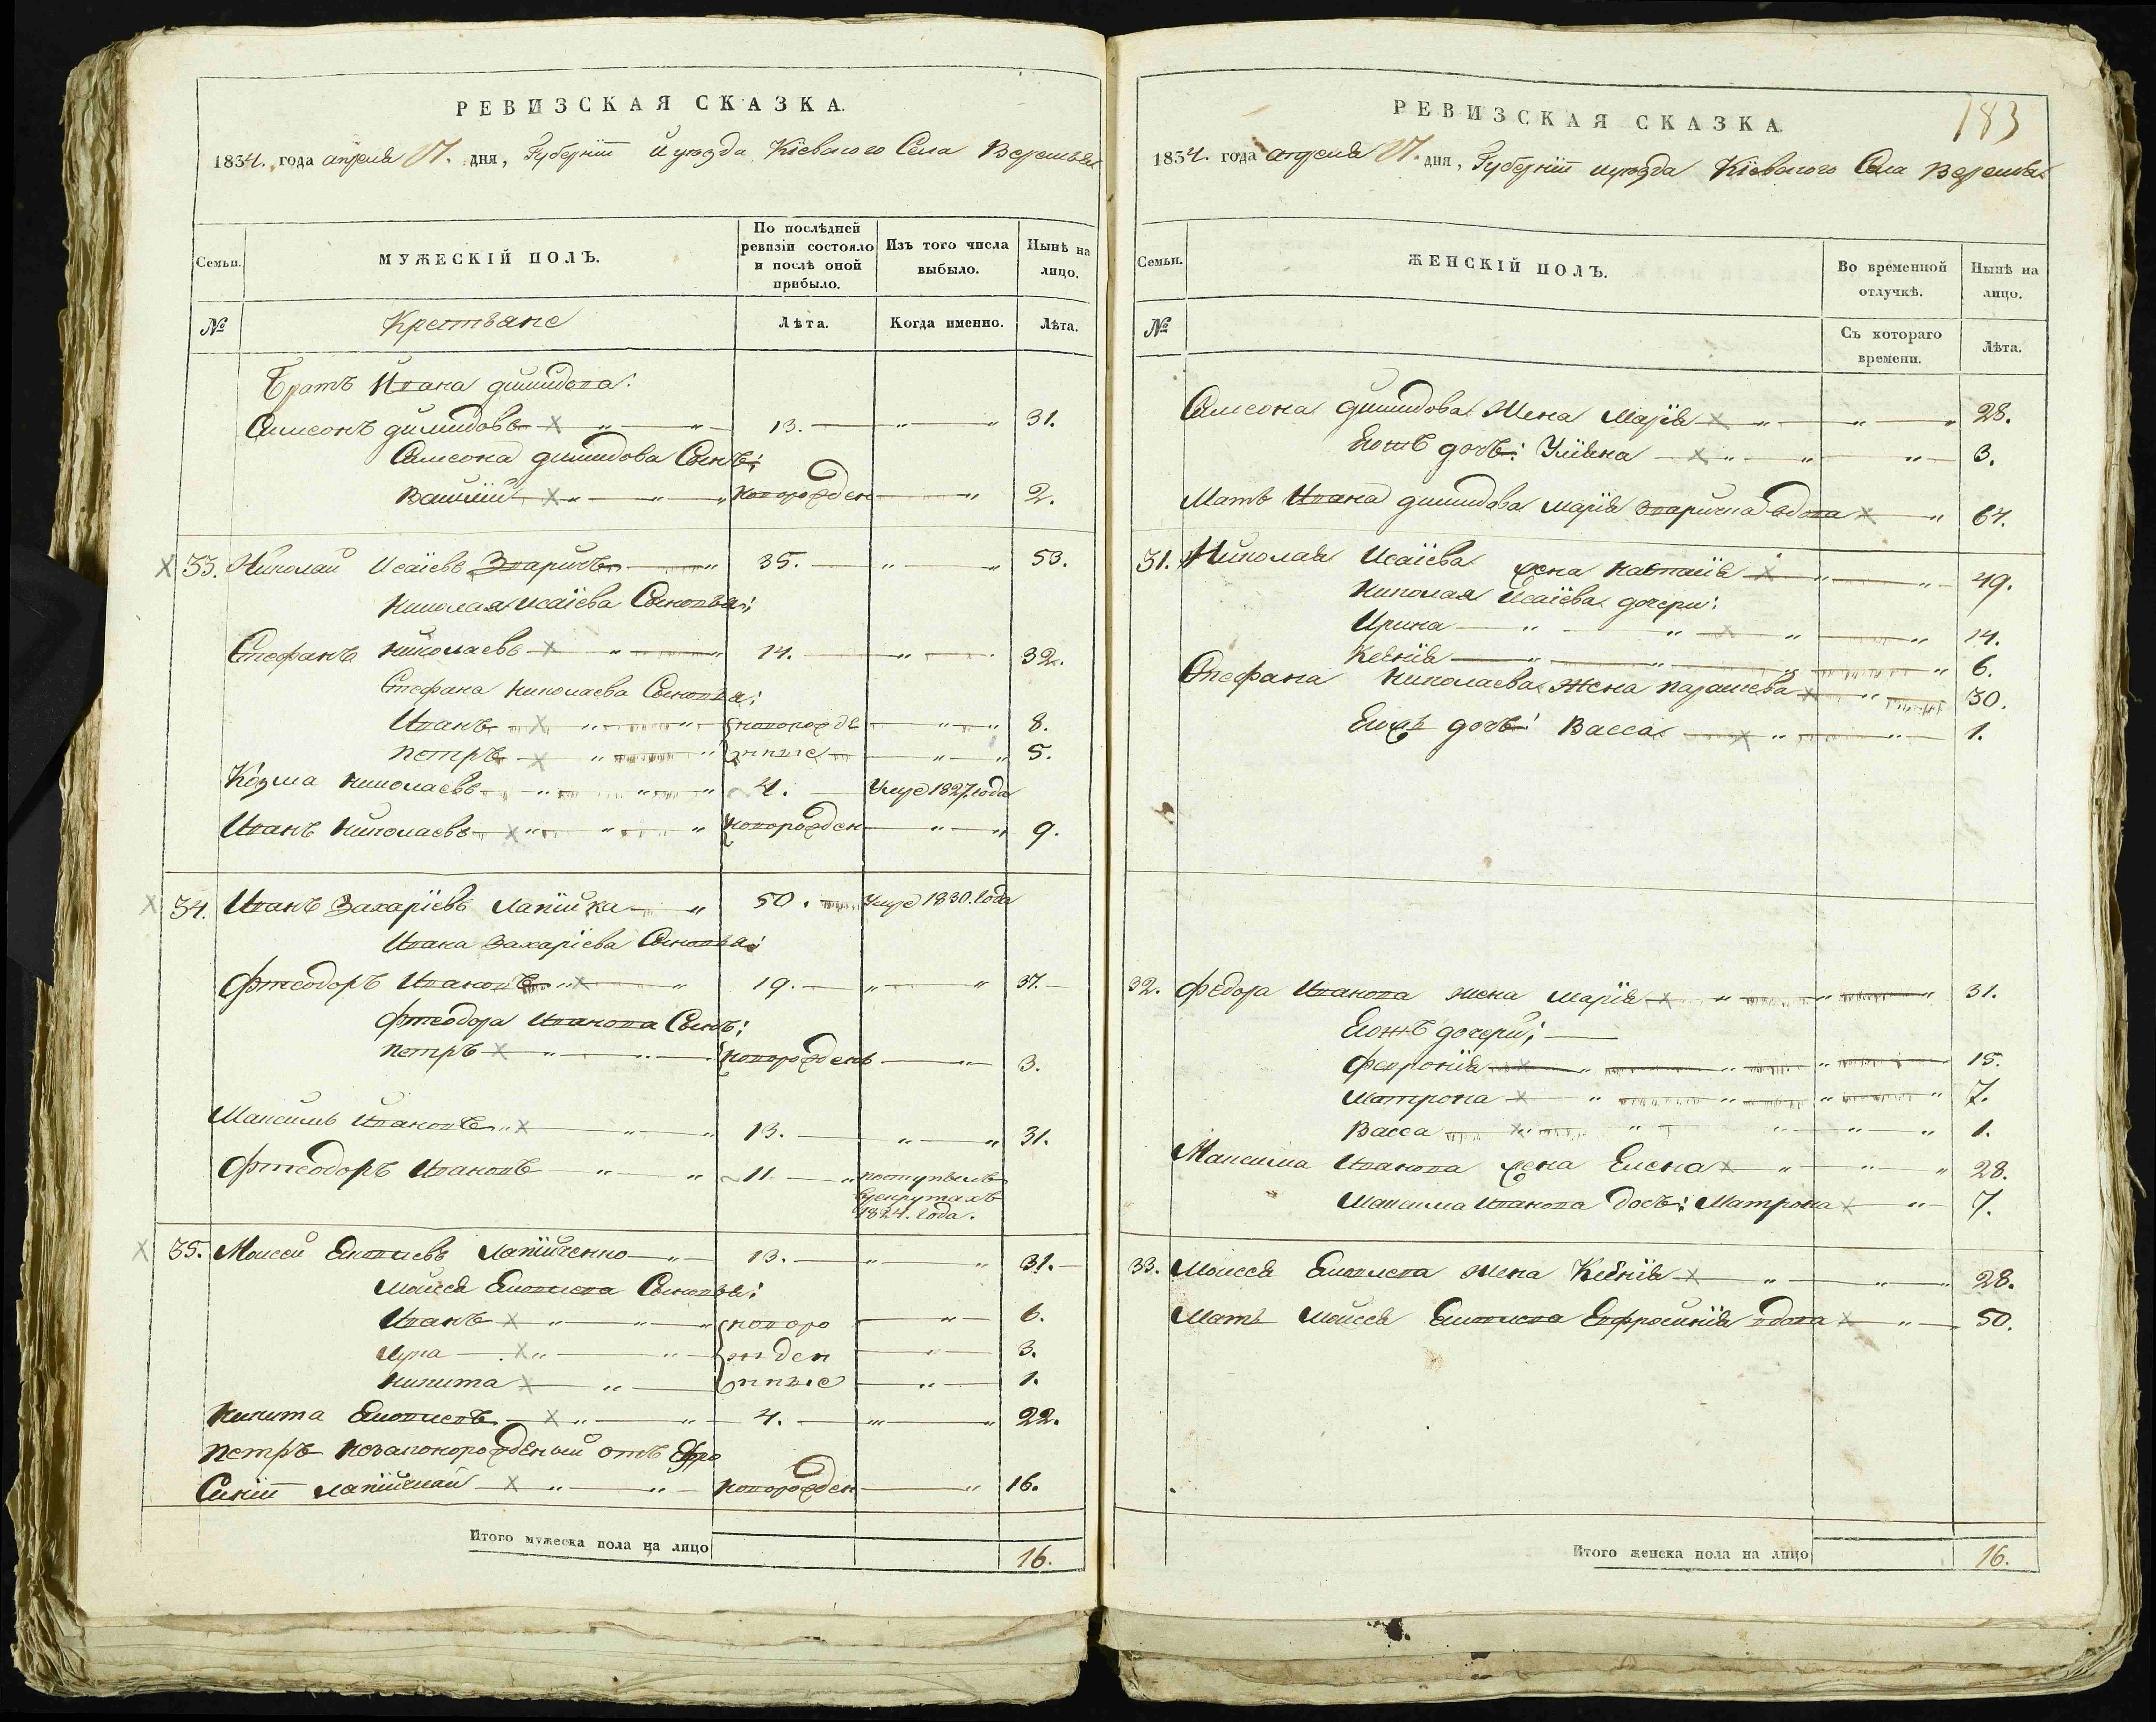 РЕВИЗСКАЯ СКАЗКА.
1834. года апреля 17. дня, Губерніи и уезда Кіевского Села
Семьи. МУЖЕСКІЙ ПОЛЪ. По послѣдней ревизіи состояло и послѣ оной прибыло. Изъ того числа выбыло. Нынѣ на лицо.
№ Крестьяне Лѣта. Когда именно. Лѣта.
Братъ Ивана Димидова:
Симеонъ Димидовъ 13. 31.
Симеона Димидова Сынъ:
Василий новорожден 2.
33. Николай Исаіевъ 35. 53.
Николая Исаіева Сыновья:
Стефанъ Николаевъ 14. 32.
Стефана Николаева Сыновья:
Иванъ новорожде 8.
Петръ нные 5.
Козма Николаевъ 4. Умре 1827. года
Иванъ Николаевъ новорожден 9.
34. Иванъ Захаріевъ Лапійка 50. Умре 1830. года
Ивана Захаріева Сыновья:
Фтеодоръ Ивановъ 19. 37.
Фтеодора Иванова Сынъ:
Петръ новорожденъ 3.
Максимъ Ивановъ 13. 31.
Фтеодоръ Ивановъ 11. поступилъ
в рекрутахъ
1824. года.
35. Моисей Лапійченко 13. 31.
Моисея Сыновья:
Иванъ новоро 6.
Лука жден 3.
Никита нные 1.
Никита 4. 22.
Петръ незаконорожденый отъ Ефро
Синіи новорожден 16.
Итого мужеска пола на лицо 16.
183
РЕВИЗСКАЯ СКАЗКА
1834. года апреля 17. дня, Губерніи и уезда Кіевского Села
Семьи. ЖЕНСКІЙ ПОЛЪ. Во временной отлучкѣ. Нынѣ на лицо.
№ Съ котораго времени. Лѣта.
Симеона Димидова Жена Марія 28.
Еіонъ дочь: Уліяна 3.
Мать Ивана Димидова Марія вдова 67.
31. Николая Исаіева жена Настасія 49.
Николая Исаіева дочери:
Ирина 14.
Ксенія 6.
Стефана Николаева Жена Параскева 30.
дочь: Васса 1.
32. Федора Иванова жена Марія 31.
дочери:
Феврония 15.
Матрона 7.
Васса 1.
Максима Иванова жена Елена 28.
Максима Иванова дочь: Матрона 7.
33. Моисея жена Ксенія 28.
Мать Моисея Евфросинія вдова 50.
Итого женска пола на лицо 16.